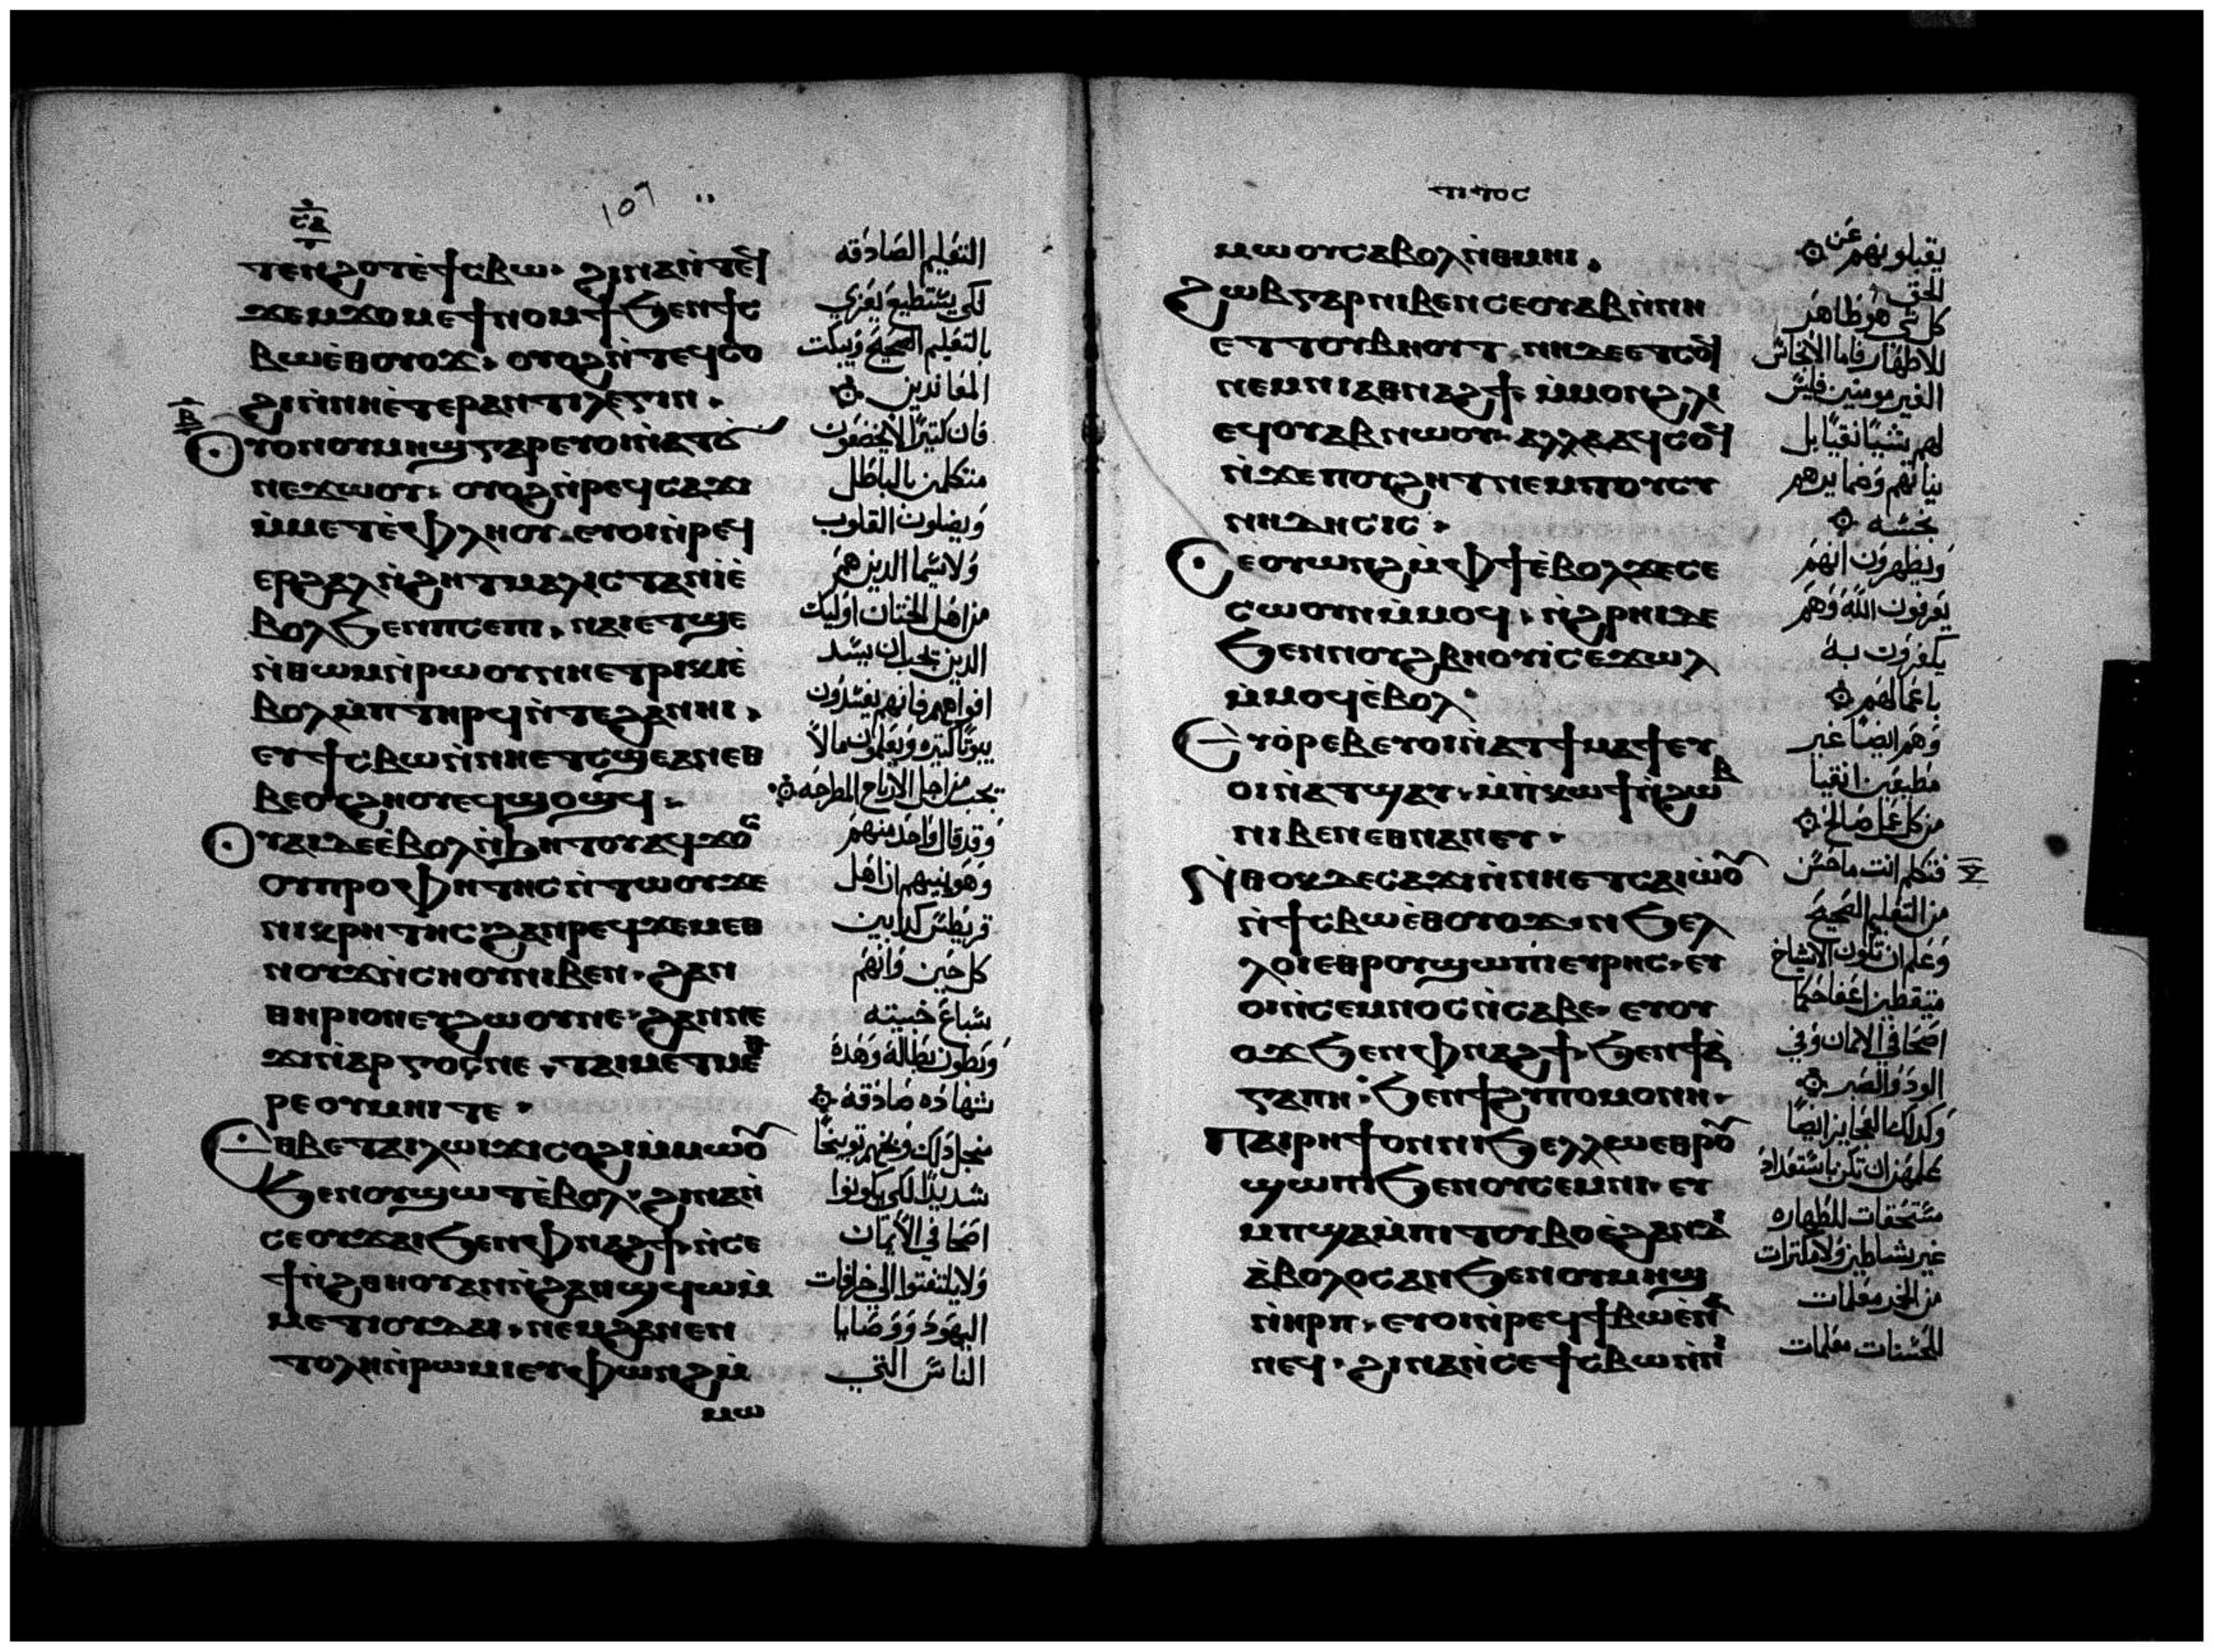 ⲥⲁ
107
ⲧⲉⲛϩⲟⲧ ⲉ̀ϯⲥⲃⲱ· ϩⲓⲛⲁ ⲛ̀ⲧⲉϥ
ϫⲉⲙϫⲟⲙ ⲉϯⲛⲟⲙϯ ϧⲉⲛ ϯⲥ
ⲃⲱ ⲉ̀ⲑⲟⲩⲟϫ· ⲟⲩⲟϩ ⲛ̀ⲧⲉϥⲥⲟ
ϩⲓ ⲛ̀ⲛⲏⲉ̀ⲧⲉⲣⲁⲛⲧⲓⲗⲉⲅⲓⲛ·
ⲃ
ⲟⲩⲟⲛ ⲟⲩⲙⲏϣ ⲅⲁⲣ ⲉⲩⲟⲓ ⲛ̀ⲁⲧϭ
ⲛⲉϫⲱⲟⲩ· ⲟⲩⲟϩ ⲛ̀ⲣⲉϥⲥⲁϫⲓ
ⲙ̀ⲙⲉⲧⲉ̀ⲫⲗⲏⲟⲩ· ⲉⲩⲟⲓ ⲛ̀ⲣⲉϥ
ⲉⲣϩⲁⲗ ⲛ̀ϩⲏⲧ ⲙⲁⲗⲓⲥⲧⲁ ⲛⲓⲉ̀
ⲃⲟⲗ ϧⲉⲛ ⲡⲥⲉⲃⲓ· ⲛⲁⲓ ⲉⲧϣⲉ
ⲛ̀ⲑⲱⲙ ⲛ̀ⲣⲱⲟⲩ ⲛⲏⲉⲧⲣⲓⲕⲓ ⲉ̀
ⲃⲟⲗ ⲙ̀ⲡⲧⲏⲣϥ ⲛ̀ⲧⲉ ϩⲁⲛⲏⲓ·
ⲉⲩϯⲥⲃⲱ ⲛ̀ⲛⲏⲉⲧⲥϣⲉ ⲁⲛ ⲉⲑ
ⲃⲉ ⲟⲩϩⲏⲟⲩ ⲉϥϣⲟϣϥ·
ⲟⲩⲁⲓ ⲇⲉ ⲉ̀ⲃⲟⲗ ⲛ̀ϧⲏⲧⲟⲩ ⲁϥϫⲟⲥ
ⲟⲩⲡⲣⲟⲫⲏⲧⲏⲥ ⲛ̀ⲧⲱⲟⲩ ϫⲉ
ⲛⲓⲕⲣⲏⲧⲏⲥ ϩⲁⲛⲣⲉϥϫⲉⲙⲉⲑ
ⲛⲟⲩϫ ⲛ̀ⲥⲏⲟⲩ ⲛⲓⲃⲉⲛ· ϩⲁⲛ
ⲑⲏⲣⲓⲟⲛ ⲉⲧϩⲱⲟⲩ ⲛⲉ· ϩⲁⲛⲛⲉ
ϫⲓ ⲛ̀ⲁⲣⲅⲟⲥ ⲛⲉ· ⲧⲁⲓⲙⲉⲧⲙⲉⲑ
ⲣⲉ ⲟⲩⲙⲏⲓ ⲧⲉ·
ⲉⲑⲃⲉ ⲧⲁⲓⲗⲱⲓϫⲓ ⲥⲟϩⲓ ⲙ̀ⲙⲱⲟⲩ
ϧⲉⲛ ⲟⲩϣⲱⲧ ⲉ̀ⲃⲟⲗ· ϩⲓⲛⲁ ⲛ̀
ⲥⲉⲟⲩϫⲁⲓ ϧⲉⲛ ⲫⲛⲁϩϯ ⲛ̀ⲥⲉ
ϯⲛ̀ϩⲑⲏⲟⲩ ⲁⲛ ⲛ̀ϩⲁⲛϣϥⲱ ⲙ̀
ⲙⲉⲧⲓⲟⲩⲇⲁⲓ· ⲛⲉⲙ ϩⲁⲛⲉⲛ
ⲧⲟⲗⲏ ⲛ̀ⲣⲱⲙⲓ ⲉⲩⲫⲱⲛϩ ⲙ̀
ⲙⲱ
التعليم الصادقه
لكي يستطيع يعزي
بالتعليم الصحيح ويبكت
المعاندين
فان كتيرًا لا يخضعون
متكلمين بالباطل
ويضلون القلوب
ولاسيما الذين هم
من اهل الختان اوليك
الذين يجب ان يسد
افواههم فانهم يفسدون
بيوتًا كتيره ويعلمون مالا
يجب من اجل الارباح المطرحه
وقد قال واحد منهم
وهو نبيهم ان اهل
قريطس كدابين
كل حين وانهم
سباع خبيته
وبطون بطاله وهده
شهاده صادقه
من اجل دلك وبخهم توبيخًا
شديدًا لكي يكونوا
اصحا في الايمان
ولا يلتفتوا الي خرافات
اليهود ووصايا
الناس التي
ⲧⲓⲧⲟⲥ
ⲙⲱⲟⲩ ⲥⲁⲃⲟⲗ ⲛ̀ⲑⲙⲏⲓ·
ϩⲱⲃ ⲅⲁⲣ ⲛⲓⲃⲉⲛ ⲥⲉⲟⲩⲁⲃ ⲛ̀ⲛⲏ
ⲉⲧⲧⲟⲩⲃⲏⲟⲩⲧ· ⲛⲏ ⲇⲉ ⲉⲧⲥⲟϥ
ⲛⲉⲙ ⲛⲓⲁⲑⲛⲁϩϯ· ⲙ̀ⲙⲟⲛ ϩⲗⲓ
ⲉϥⲟⲩⲁⲃ ⲛⲱⲟⲩ· ⲁⲗⲗⲁ ⲁϥⲥⲟϥ
ⲛ̀ϫⲉ ⲡⲟⲩϩⲏⲧ ⲛⲉⲙ ⲧⲟⲩⲥⲩ
ⲛⲏⲇⲏⲥⲓⲥ·
ⲥⲉⲟⲩⲱⲛϩ ⲙ̀ⲫϯ ⲉ̀ⲃⲟⲗ ϫⲉ ⲥⲉ
ⲥⲱⲟⲩⲛ ⲙ̀ⲙⲟϥ· ⲛ̀ϩⲣⲏⲓ ⲇⲉ
ϧⲉⲛ ⲛⲟⲩϩⲃⲏⲟⲩⲓ̀ ⲥⲉϫⲱⲗ
ⲙ̀ⲙⲟϥ ⲉ̀ⲃⲟⲗ
ⲉⲩⲟ̀ⲣⲉⲃ ⲉⲩⲟⲓ ⲛ̀ⲁⲧϯⲙⲁϯ ⲉⲩ
ⲟⲓ ⲛ̀ⲁⲧϣⲁⲩ· ⲙ̀ⲡⲕⲱϯ ⲛ̀ϩⲱⲃ
ⲛⲓⲃⲉⲛ ⲉⲑⲛⲁⲛⲉⲩ·
ⲛ̀ⲑⲟⲕ ⲇⲉ ⲥⲁϫⲓ ⲛ̀ⲛⲏⲉⲧⲥⲁⲓⲱⲟⲩ
ⲛ̀ϯⲥⲃⲱ ⲉ̀ⲑⲟⲩⲟϫ· ⲛⲓϧⲉⲗ
ⲗⲟⲓ ⲉⲑⲣⲟⲩϣⲱⲡⲓ ⲉⲩⲣⲏⲥ· ⲉⲩ
ⲟⲓ ⲛ̀ⲥⲉⲙⲛⲟⲥ ⲛ̀ⲥⲁⲃⲉ· ⲉⲩⲟⲩ
ⲟϫ ϧⲉⲛ ⲫⲛⲁϩϯ· ϧⲉⲛ ϯⲁ̀
ⲅⲁⲡⲏ· ϧⲉⲛ ϯϩⲩⲡⲟⲙⲟⲛⲏ·
ⲡⲁⲓⲣⲏϯ ⲟⲛ ⲛⲓϧⲉⲗⲗⲱ ⲉⲑⲣⲟⲩ
ϣⲱⲡⲓ ϧⲉⲛ ⲟⲩⲥⲉⲙⲛⲓ· ⲉⲩ
ⲙⲡϣⲁ ⲙ̀ⲡⲓⲧⲟⲩⲃⲟ ⲉ̀ϩⲁⲛⲇⲓ
ⲁ̀ⲃⲟⲗⲟⲥ ⲁⲛ ϧⲉⲛ ⲟⲩⲙⲏϣ
ⲛ̀ⲏⲣⲡ· ⲉⲩⲟⲓ ⲛ̀ⲣⲉϥϯⲥⲃⲱ ⲉ̀ⲡⲉⲑⲛⲁ
ⲛⲉϥ· ϩⲓⲛⲁ ⲛ̀ⲥⲉϯⲥⲃⲱ ⲛ̀ⲛⲓ
يقبلونهم عن
الحق
كل شي هو طاهر
للاطهار فاما الانجاس
الغير مومنين فليس
لهم شيًا نقيًا بل
نياتهم وضمايرهم
نجسه
ويظهرون انهم
يعرفون الله وهم
يكفرون به
باعمالهم
وهم ايضًا غير
مطيعين انقيا
من كل عمل صالح
فتكلم انت ما حسن
من التعليم الصحيح
وعلم ان تكون الاشياخ
متيقظين اعفا حكما
اصحا في الايمان وفي
الود والصبر
وكدلك العجايز ايضًا
علمهن ان تكن باستعداد
مستحقات للطهاره
غير شياطين ولا ملترات
من الخمر معلمات
للحسنات معلمات